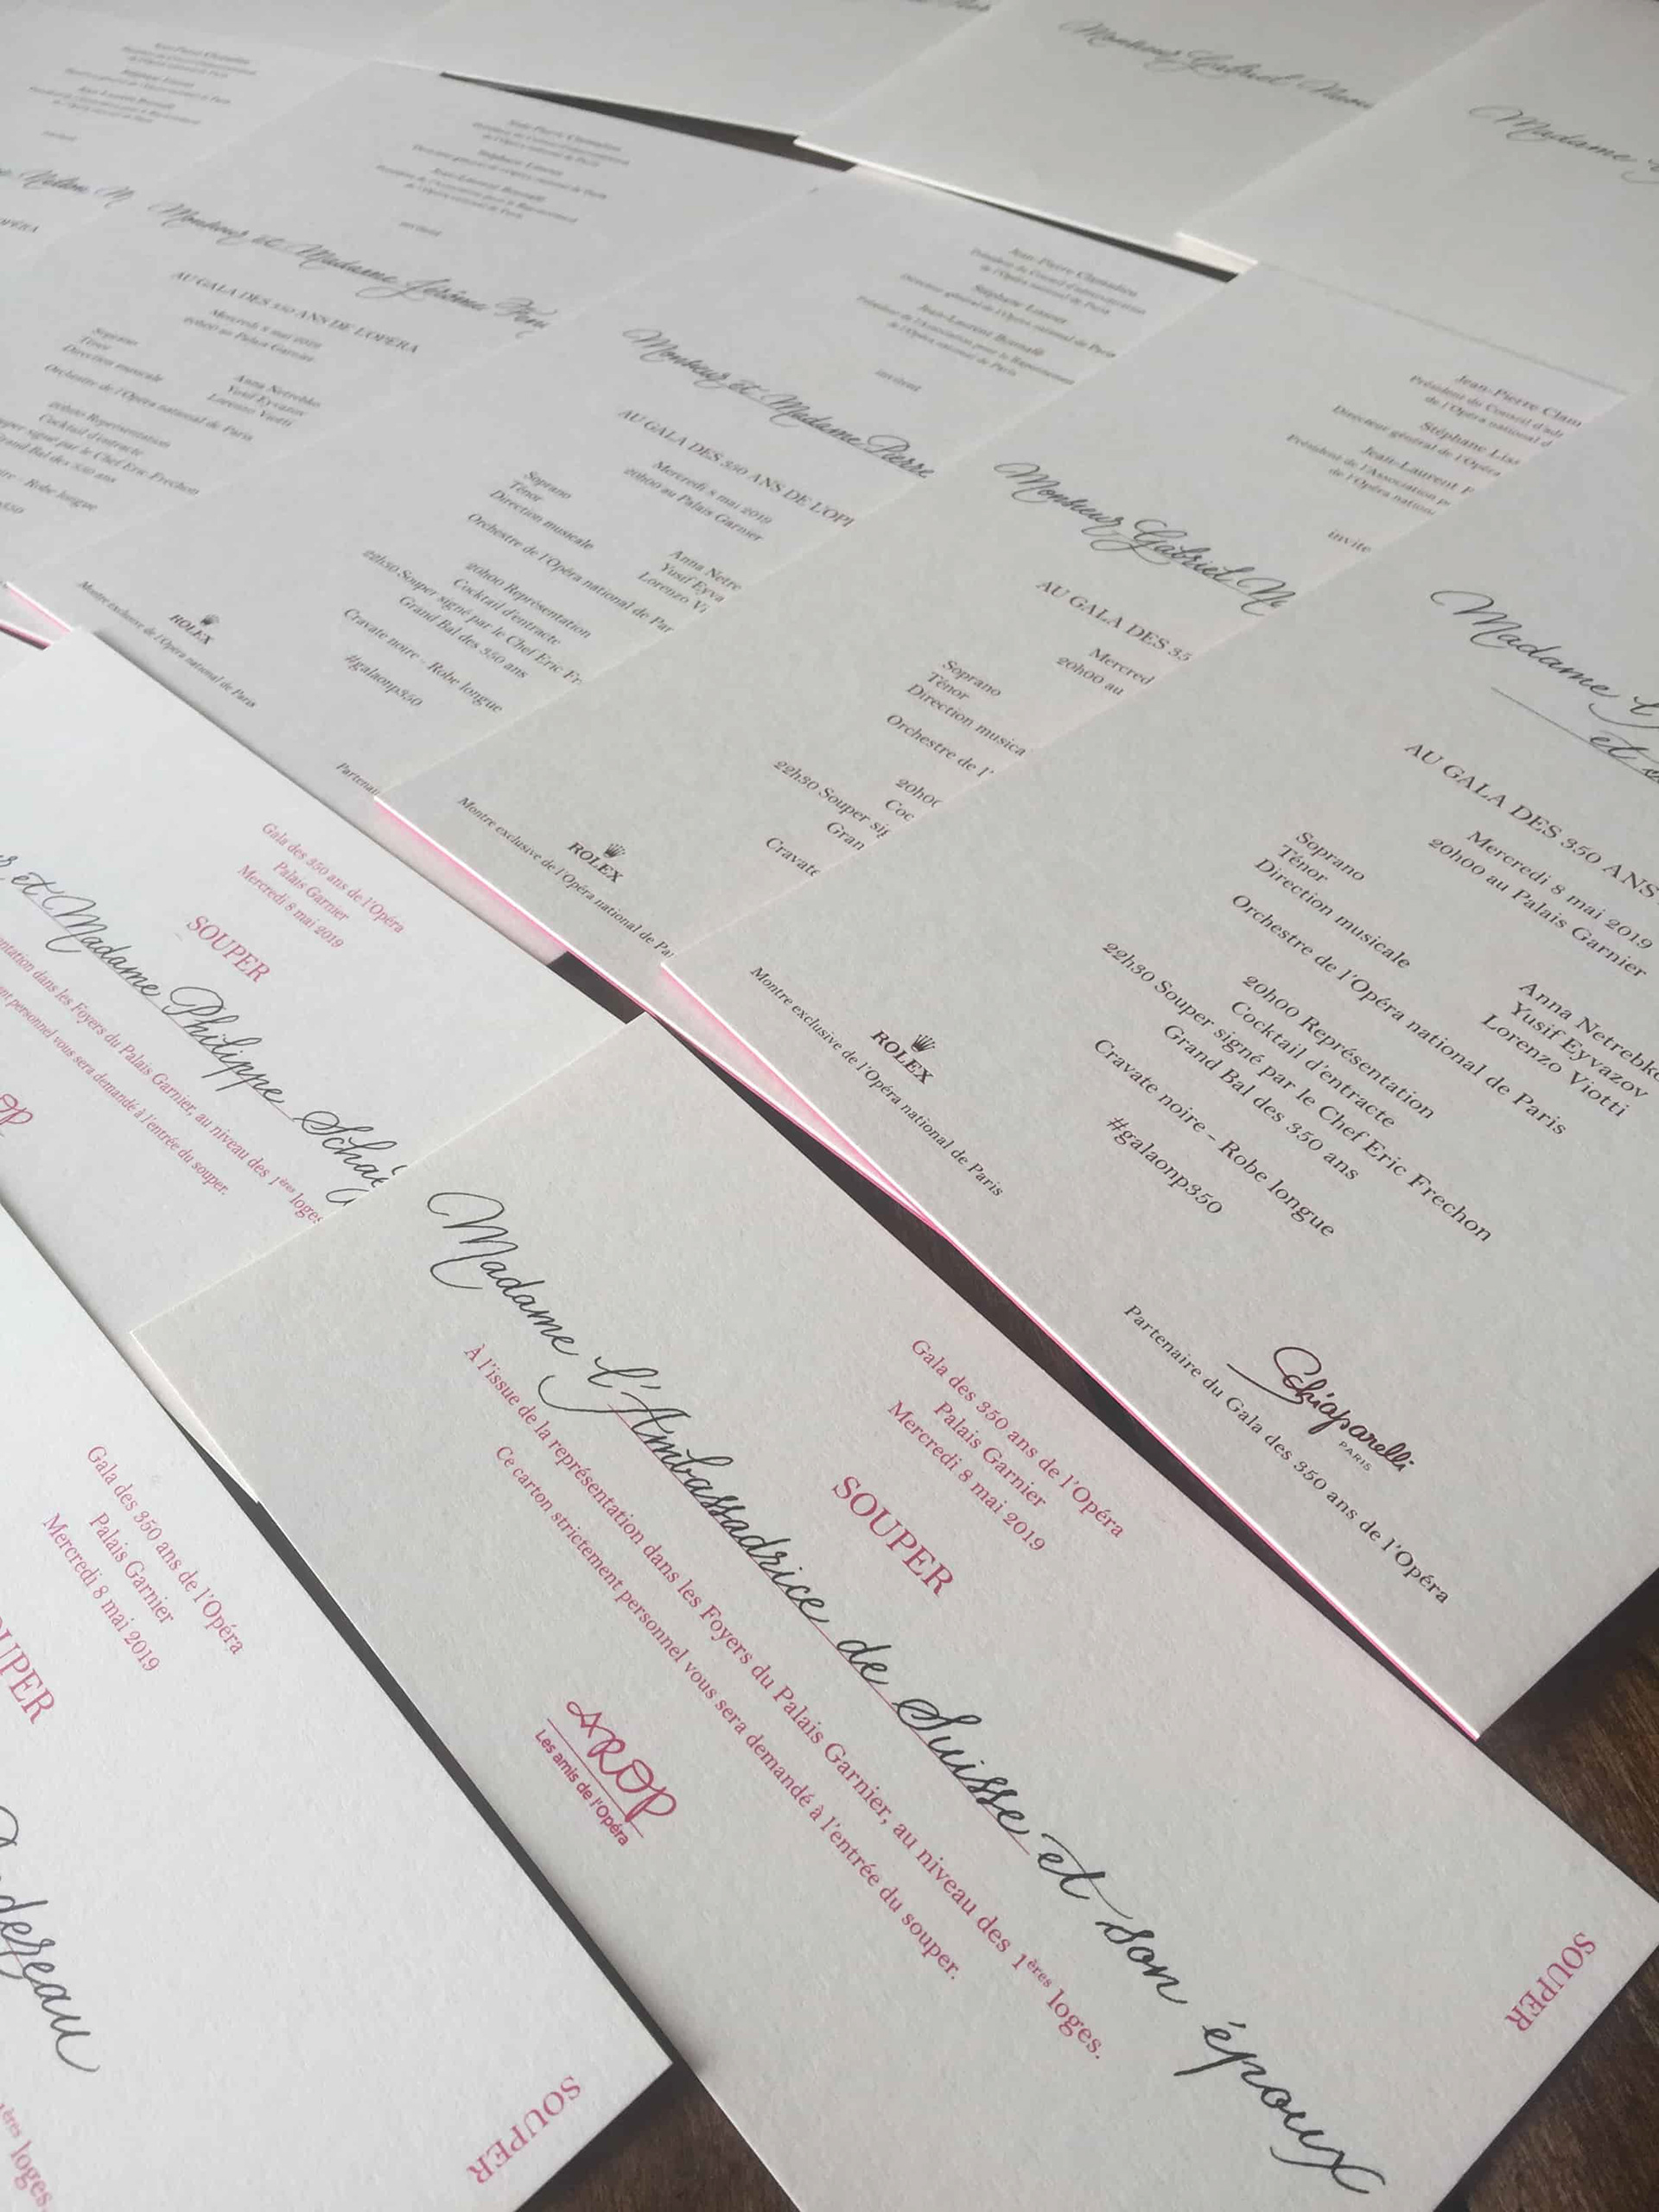 Monsieur Gabriel
Madame
Jean-Pierre Clamadieu
Président du Conseil d'administration
de l'Opéra national de Paris
Stéphane Lissner
Directeur général de l'Opéra national de Paris
invitent
Monsieur et Madame Jérôme
AU GALA DES 350 ANS DE L'OPÉRA
Mercredi 8 mai 2019
20h00 au Palais Garnier
Soprano
Anna Netrebko
Ténor
Yusif Eyvazov
Direction musicale
Lorenzo Viotti
Orchestre de l'Opéra national de Paris
20h00 Représentation
Cocktail d'entracte
Souper signé par le Chef Eric Frechon
Grand Bal des 350 ans
Robe longue
ROLEX
Montre exclusive de l'Opéra national de Paris
Jean-Pierre Clamadieu
Président du Conseil d'administration
de l'Opéra national de Paris
Stéphane Lissner
Directeur général de l'Opéra national de Paris
invitent
Monsieur et Madame Pierre
AU GALA DES 350 ANS DE L'OP
Mercredi 8 mai 2019
20h00 au Palais Garnier
Soprano
Anna Netre
Ténor
Yusif Eyva
Direction musicale
Lorenzo Vi
Orchestre de l'Opéra national de Par
20h00 Représentation
Cocktail d'entracte
22h30 Souper signé par le Chef Eric Fr
Grand Bal des 350 ans
Cravate noire - Robe longue
#galaonp350
Partenai
ROLEX
Montre exclusive de l'Opéra national de Pa
Monsieur Gabriel
AU GALA DES 35
Mercred
20h00 au
Soprano
Ténor
Direction musica
Orchestre de l'
20h00
Coc
22h30 Souper sig
Gran
Cravate
ROLEX
Montre exclusive de l'Opéra national de Paris
Jean-Pierre Clam
Président du Conseil d'ad
de l'Opéra national d
Stéphane Liss
Directeur général de l'Opéra
Jean-Laurent
Président de l'Association p
de l'Opéra nation
invite
Madame l'
et
AU GALA DES 350 ANS
Mercredi 8 mai 2019
20h00 au Palais Garnier
Soprano
Anna Netrebko
Ténor
Yusif Eyvazov
Direction musicale
Lorenzo Viotti
Orchestre de l'Opéra national de Paris
20h00 Représentation
Cocktail d'entracte
22h30 Souper signé par le Chef Eric Frechon
Grand Bal des 350 ans
Cravate noire - Robe longue
#galaonp350
Schiaparelli
PARIS
Partenaire du Gala des 350 ans de l'Opéra
Gala des 350 ans de l'Opéra
Palais Garnier
Mercredi 8 mai 2019
SOUPER
et Madame Philippe
entation dans les Foyers du Palais Garnier, au niveau des 1ères loges
ent personnel vous sera demandé à l'entrée du souper.
Gala des 350 ans de l'Opéra
Palais Garnier
Mercredi 8 mai 2019
SOUPER
Madame l'Ambassadrice de Suisse et son époux
À l'issue de la représentation dans les Foyers du Palais Garnier, au niveau des 1ères loges.
Ce carton strictement personnel vous sera demandé à l'entrée du souper.
AROP
Les amis de l'Opéra
SOUPER
Gala des 350 ans de l'Opéra
Palais Garnier
Mercredi 8 mai 2019
OUPER
dereau
ères loges.
SOUPER